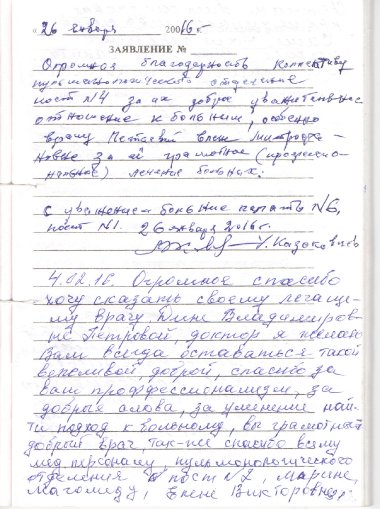 «26 января 20016 г.
ЗАЯВЛЕНИЕ №
Огромная благодарность коллективу
пульмонологического отделения
пост №4 за их доброе уважительное
отношение к больным, особенно
врачу
за её грамотное (професcио-
нальное) лечение больных.
С уважением больные палаты №6,
пост №1. 26 января 2016 г.
4.02.16. Огромное спасибо
хочу сказать своему лечаще-
му врачу, Владимиров-
не Петровой, доктор я желаю
Вам всегда оставаться такой
вежливой доброй, спасибо за
ваш профессионализм, за
добрые слова, за умение най-
ти подход к больному, вы грамотный
добрый врач, так-же спасибо всему
мед персоналу, пульмонологического
отделения пост №2, Марине,
Магомеду, Елене Викторовне.